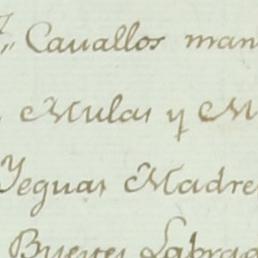 Cavallos man
Mulas y M
Yeguas Madre
Bueyes Labrad